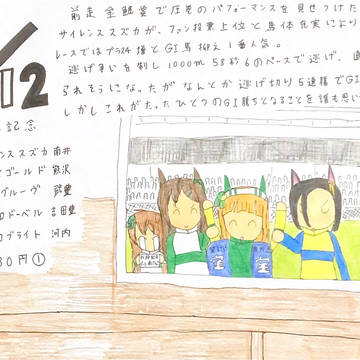 前走金鯱賞で圧巻のパフォーマンスを見せつけた
サイレンススズカが、ファン投票上位と馬体充実により
レースではプラス4 増とGI馬抑え1番人気。
逃げ争いを制し1000m 58秒6のペースで逃げ、直
られそうになったがなんとか逃げ切り5連勝でGI
しかしこれがたったひとつのGI勝ちとなることを誰も思い
12
記念
ンススズカ 南井
ゴールド 熊沢
グルーヴ 武豊
ロドーベル 吉田豊
ブライト 河内
80円①